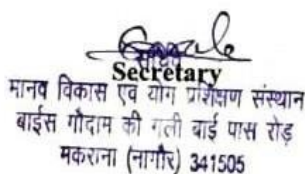 सचिव
Secretary
मानव विकास एवं योग प्रशिक्षण संस्थान
बाईस गौदाम की गली बाई पास रोड़
मकराना (नागौर) 341505